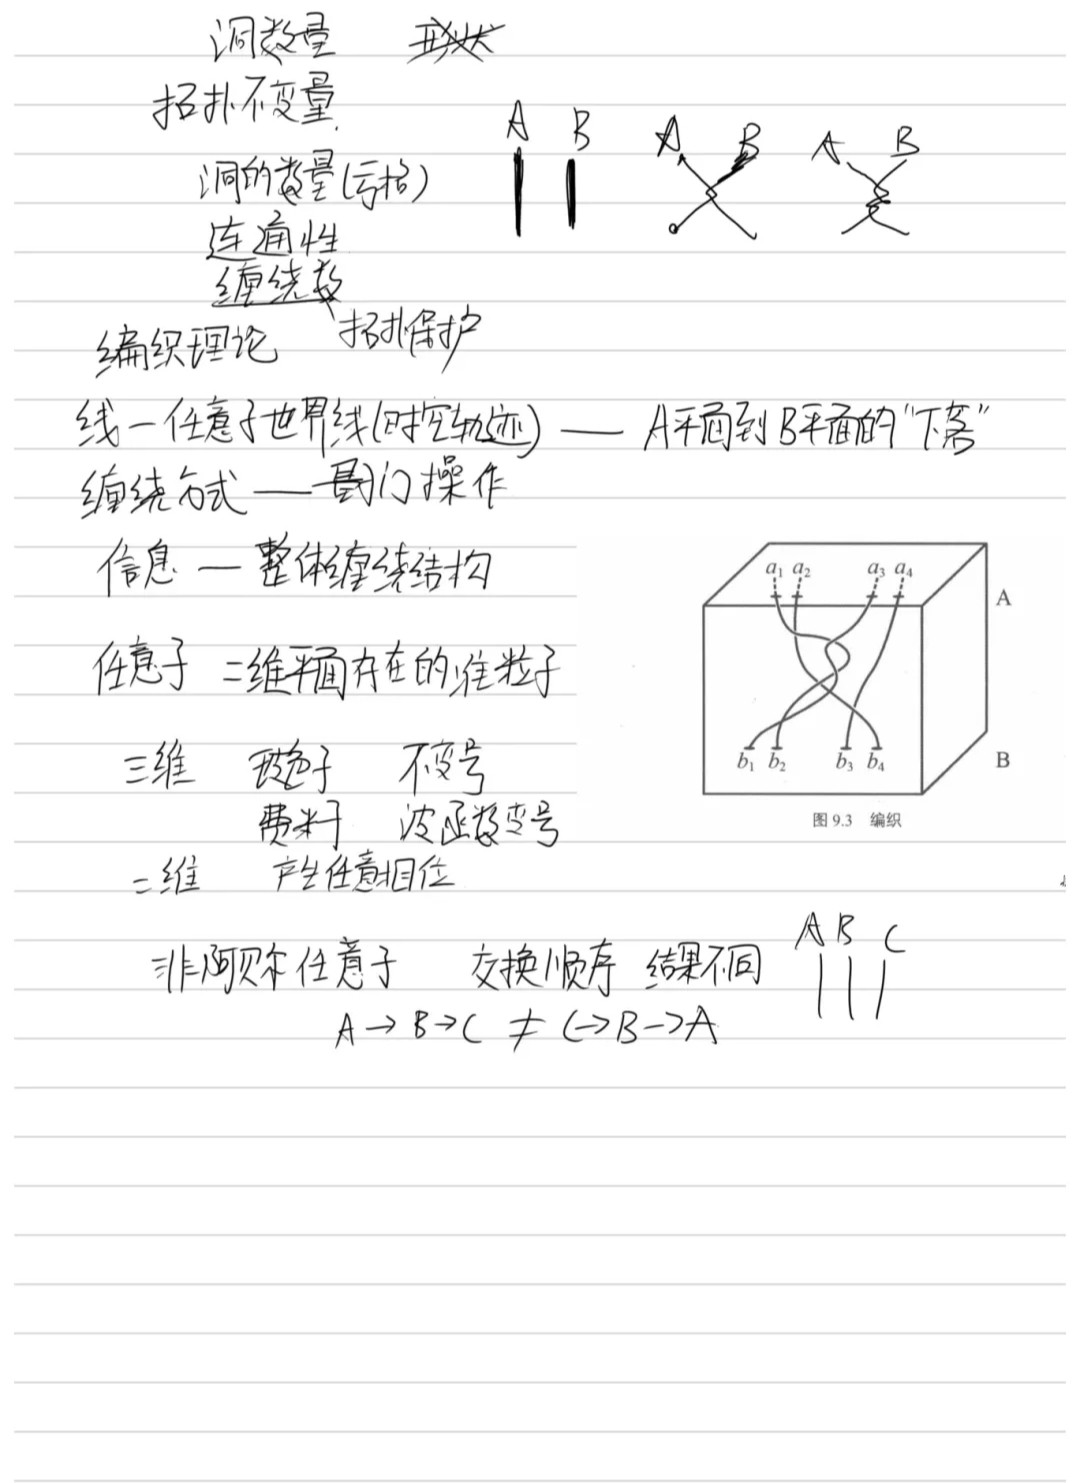 洞数量
拓扑不变量
A B A B A B
洞的数量(亏格)
连通性
缠绕数
拓扑保护
编织理论
线－任意子世界线(时空轨迹) —— A平面到B平面的“下落”
缠绕方式 —— 门操作
信息 — 整体缠绕结构
a1 a2 a3 a4
A
任意子 二维平面存在的准粒子
三维 玻色子 不变号
b1 b2 b3 b4
B
费米子 波函数变号
图 9.3 编织
二维 产生任意相位
非阿贝尔任意子 交换顺序 结果不同
A B C
A→B→C ≠ C→B→A